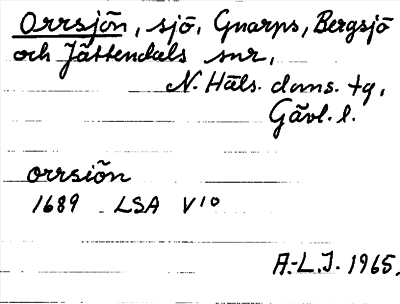 Orrsjön, sjö, Gnarps, Bergsjö
och Jättendals snr,
N. Häls. doms. tg,
Gävl. l.
orrsiön
1689 LSA V10
A.-L.J. 1965.